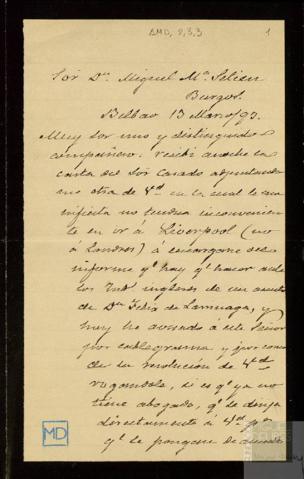 BMD, 2,3,3
1
Sor Dn. Miguel Ma.
Burgos.
Bilbao 13 Marzo/93.
Muy sor mio y distinguido
compañero: recibí anoche la
carta del Sor Casado adjuntando
me otra de Vd en la cual le ma
nifiesta no tendria inconvenien
te en ir á Liverpool (no
á Londres) á encargarse del
informe qe hay qe hacer ante
los Trib. ingleses de un asunto
de Dn Felix de y
hoy he avisado á este Señor
por cablegrama y por correo
de su resolucion de Vd
rogandole, si es qe ya no
tiene abogado, qe se dirija
directamente á Vd
qe se pongan de acuerdo
MD